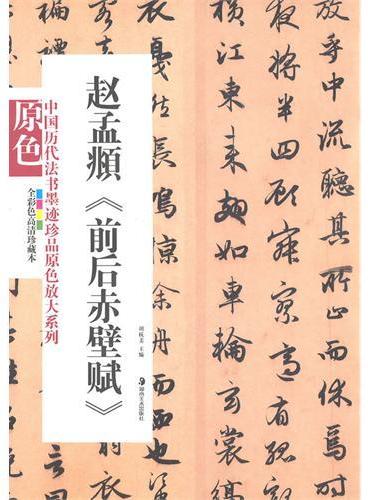 放乎中流聽其所止而休焉時
夜將半四顧寂寥適有孤鶴
橫江東來翅如車輪玄裳縞
衣戛然長鳴掠余舟而西也
赵孟頫《前后赤壁赋》
胡枕玉 主编
湖南美术出版社
中国历代法书墨迹珍品原色放大系列
原色
全彩色高清珍藏本